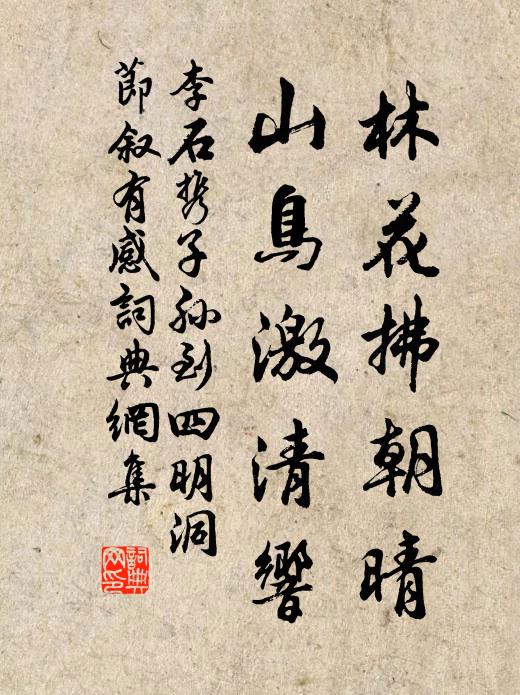 林花拂朝晴
山鳥激清響
李石携子孙到四明洞
節叙有感詞典網集
詞典网印